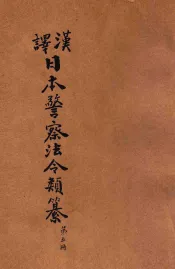 漢譯日本警察法令類纂
第五冊